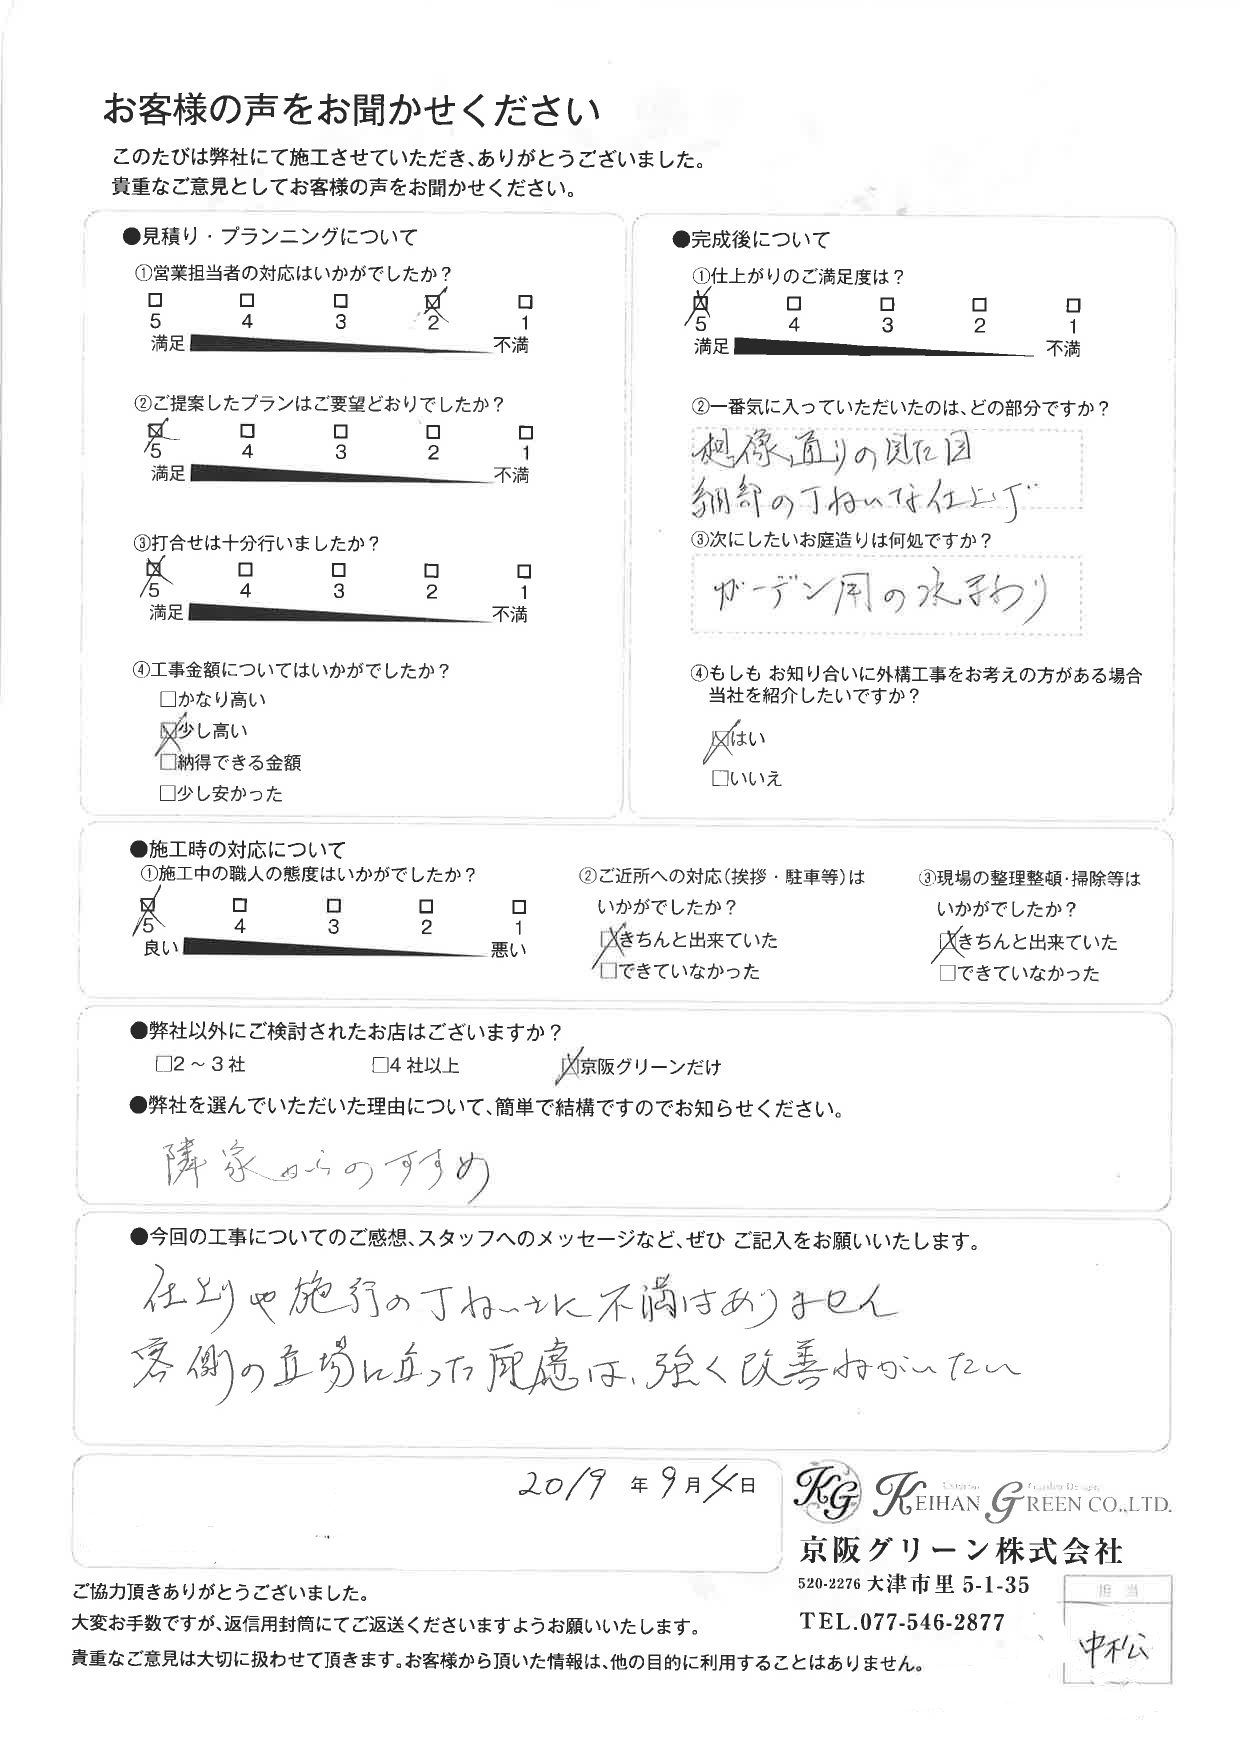 お客様の声をお聞かせください
このたびは弊社にて施工させていただき、ありがとうございました。
貴重なご意見としてお客様の声をお聞かせください。
●見積り・プランニングについて
①営業担当者の対応はいかがでしたか？
5 4 3 2 1
満足 不満
②ご提案したプランはご要望どおりでしたか？
5 4 3 2 1
満足 不満
③打合せは十分行いましたか？
5 4 3 2 1
満足 不満
④工事金額についてはいかがでしたか？
□かなり高い
☒少し高い
□納得できる金額
□少し安かった
●完成後について
①仕上がりのご満足度は？
5 4 3 2 1
満足 不満
②一番気に入っていただいたのは、どの部分ですか？
想像通りの見た目
細部の丁ねいな仕上げ
③次にしたいお庭造りは何処ですか？
ガーデン用の水まわり
④もしも お知り合いに外構工事をお考えの方がある場合
当社を紹介したいですか？
☒はい
□いいえ
●施工時の対応について
①施工中の職人の態度はいかがでしたか？
5 4 3 2 1
良い 悪い
②ご近所への対応（挨拶・駐車等）は
いかがでしたか？
☒きちんと出来ていた
□できていなかった
③現場の整理整頓・掃除等は
いかがでしたか？
☒きちんと出来ていた
□できていなかった
●弊社以外にご検討されたお店はございますか？
□2～3社 □4社以上 ☒京阪グリーンだけ
●弊社を選んでいただいた理由について、簡単で結構ですのでお知らせください。
隣家からのすすめ
●今回の工事についてのご感想、スタッフへのメッセージなど、ぜひ ご記入をお願いいたします。
仕上りや施行の丁ねいさに不満はありません
客側の立場に立った配慮は、強く改善ねがいたい
2019 年 9 月 4 日
KG KEIHAN GREEN CO.,LTD.
京阪グリーン株式会社
520-2276 大津市里 5-1-35
TEL.077-546-2877
担当
中松
ご協力頂きありがとうございました。
大変お手数ですが、返信用封筒にてご返送くださいますようお願いいたします。
貴重なご意見は大切に扱わせて頂きます。お客様から頂いた情報は、他の目的に利用することはありません。